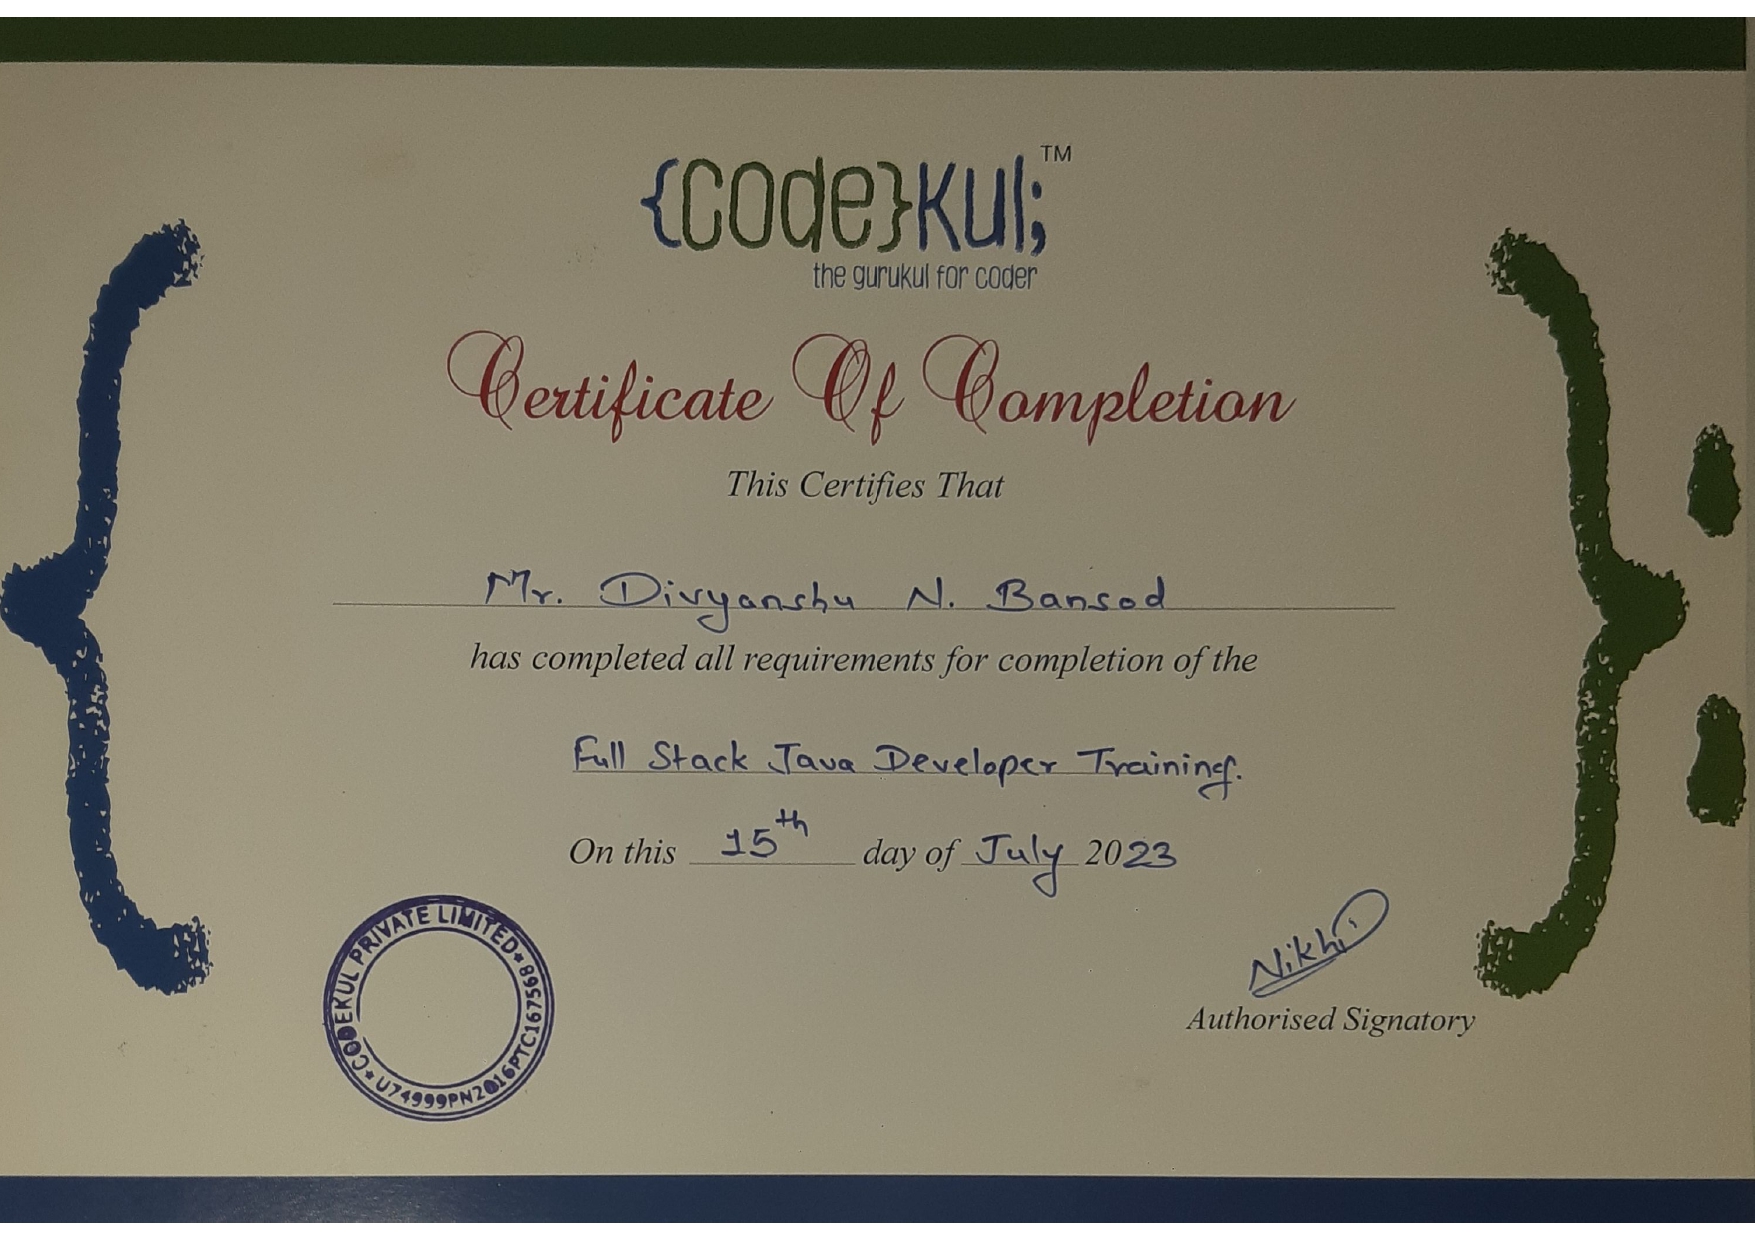 {code}kul; TM
the gurukul for coder
Certificate Of Completion
This Certifies That
Mr. Divyanshu N. Bansod
has completed all requirements for completion of the
Full Stack Java Developer Training.
On this 15th day of July 2023
CODEKUL PRIVATE LIMITED * U74999PN2016PTC167568 *
Nikhil
Authorised Signatory